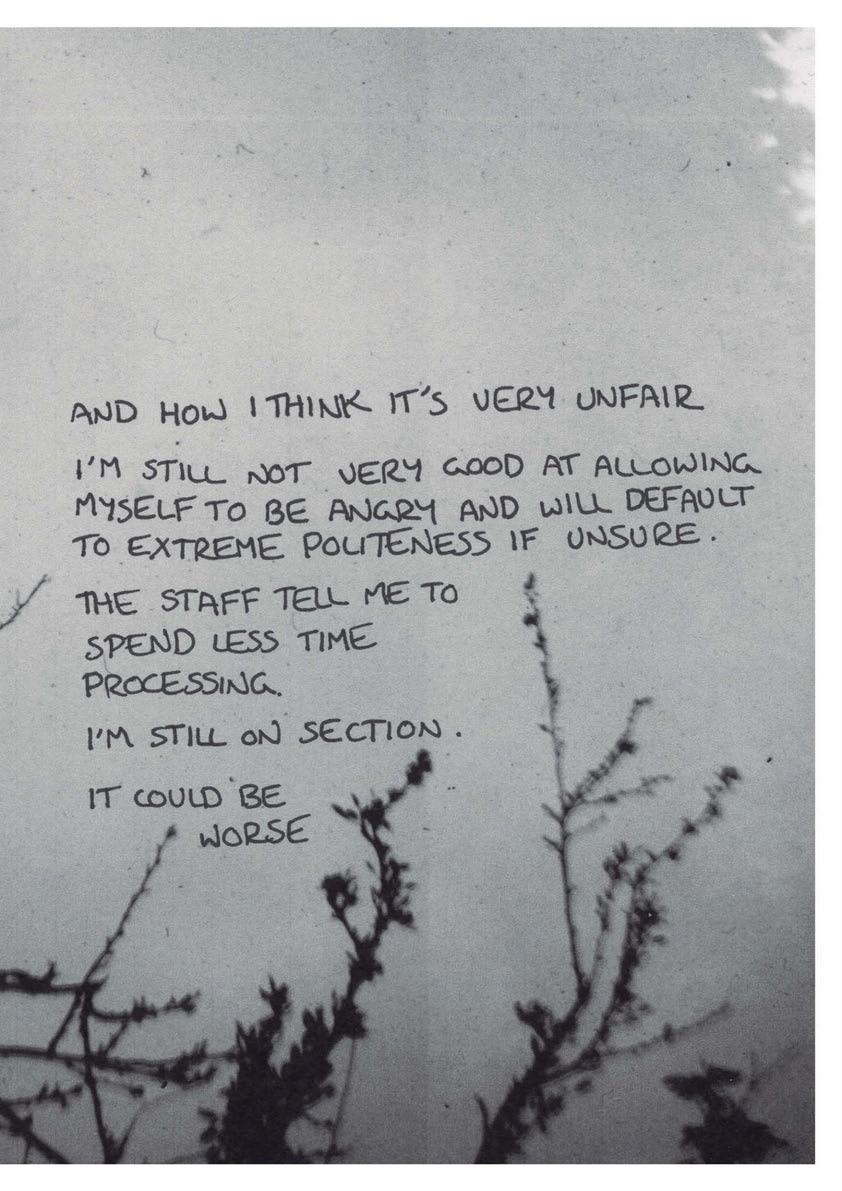 AND HOW I THINK IT'S VERY UNFAIR
I'M STILL NOT VERY GOOD AT ALLOWING
MYSELF TO BE ANGRY AND WILL DEFAULT
TO EXTREME POLITENESS IF UNSURE.
THE STAFF TELL ME TO
SPEND LESS TIME
PROCESSING.
I'M STILL ON SECTION.
IT COULD BE
WORSE